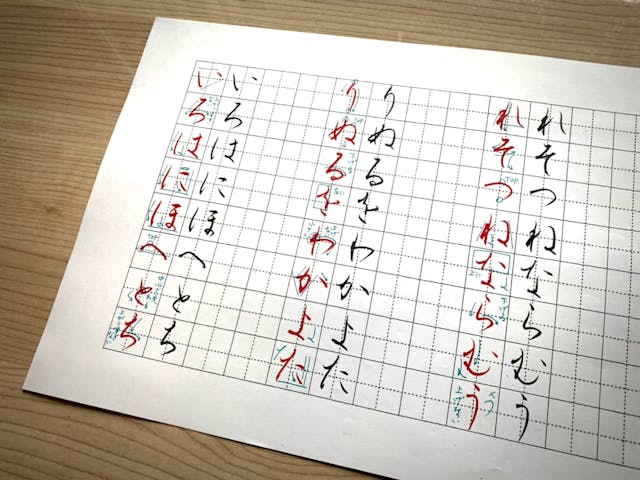 いろはにほへとち
いろはにほへとち
りぬるをわかよた
りぬるをわかよた
れそつねならむう
れそつねならむう
TOP
TOP